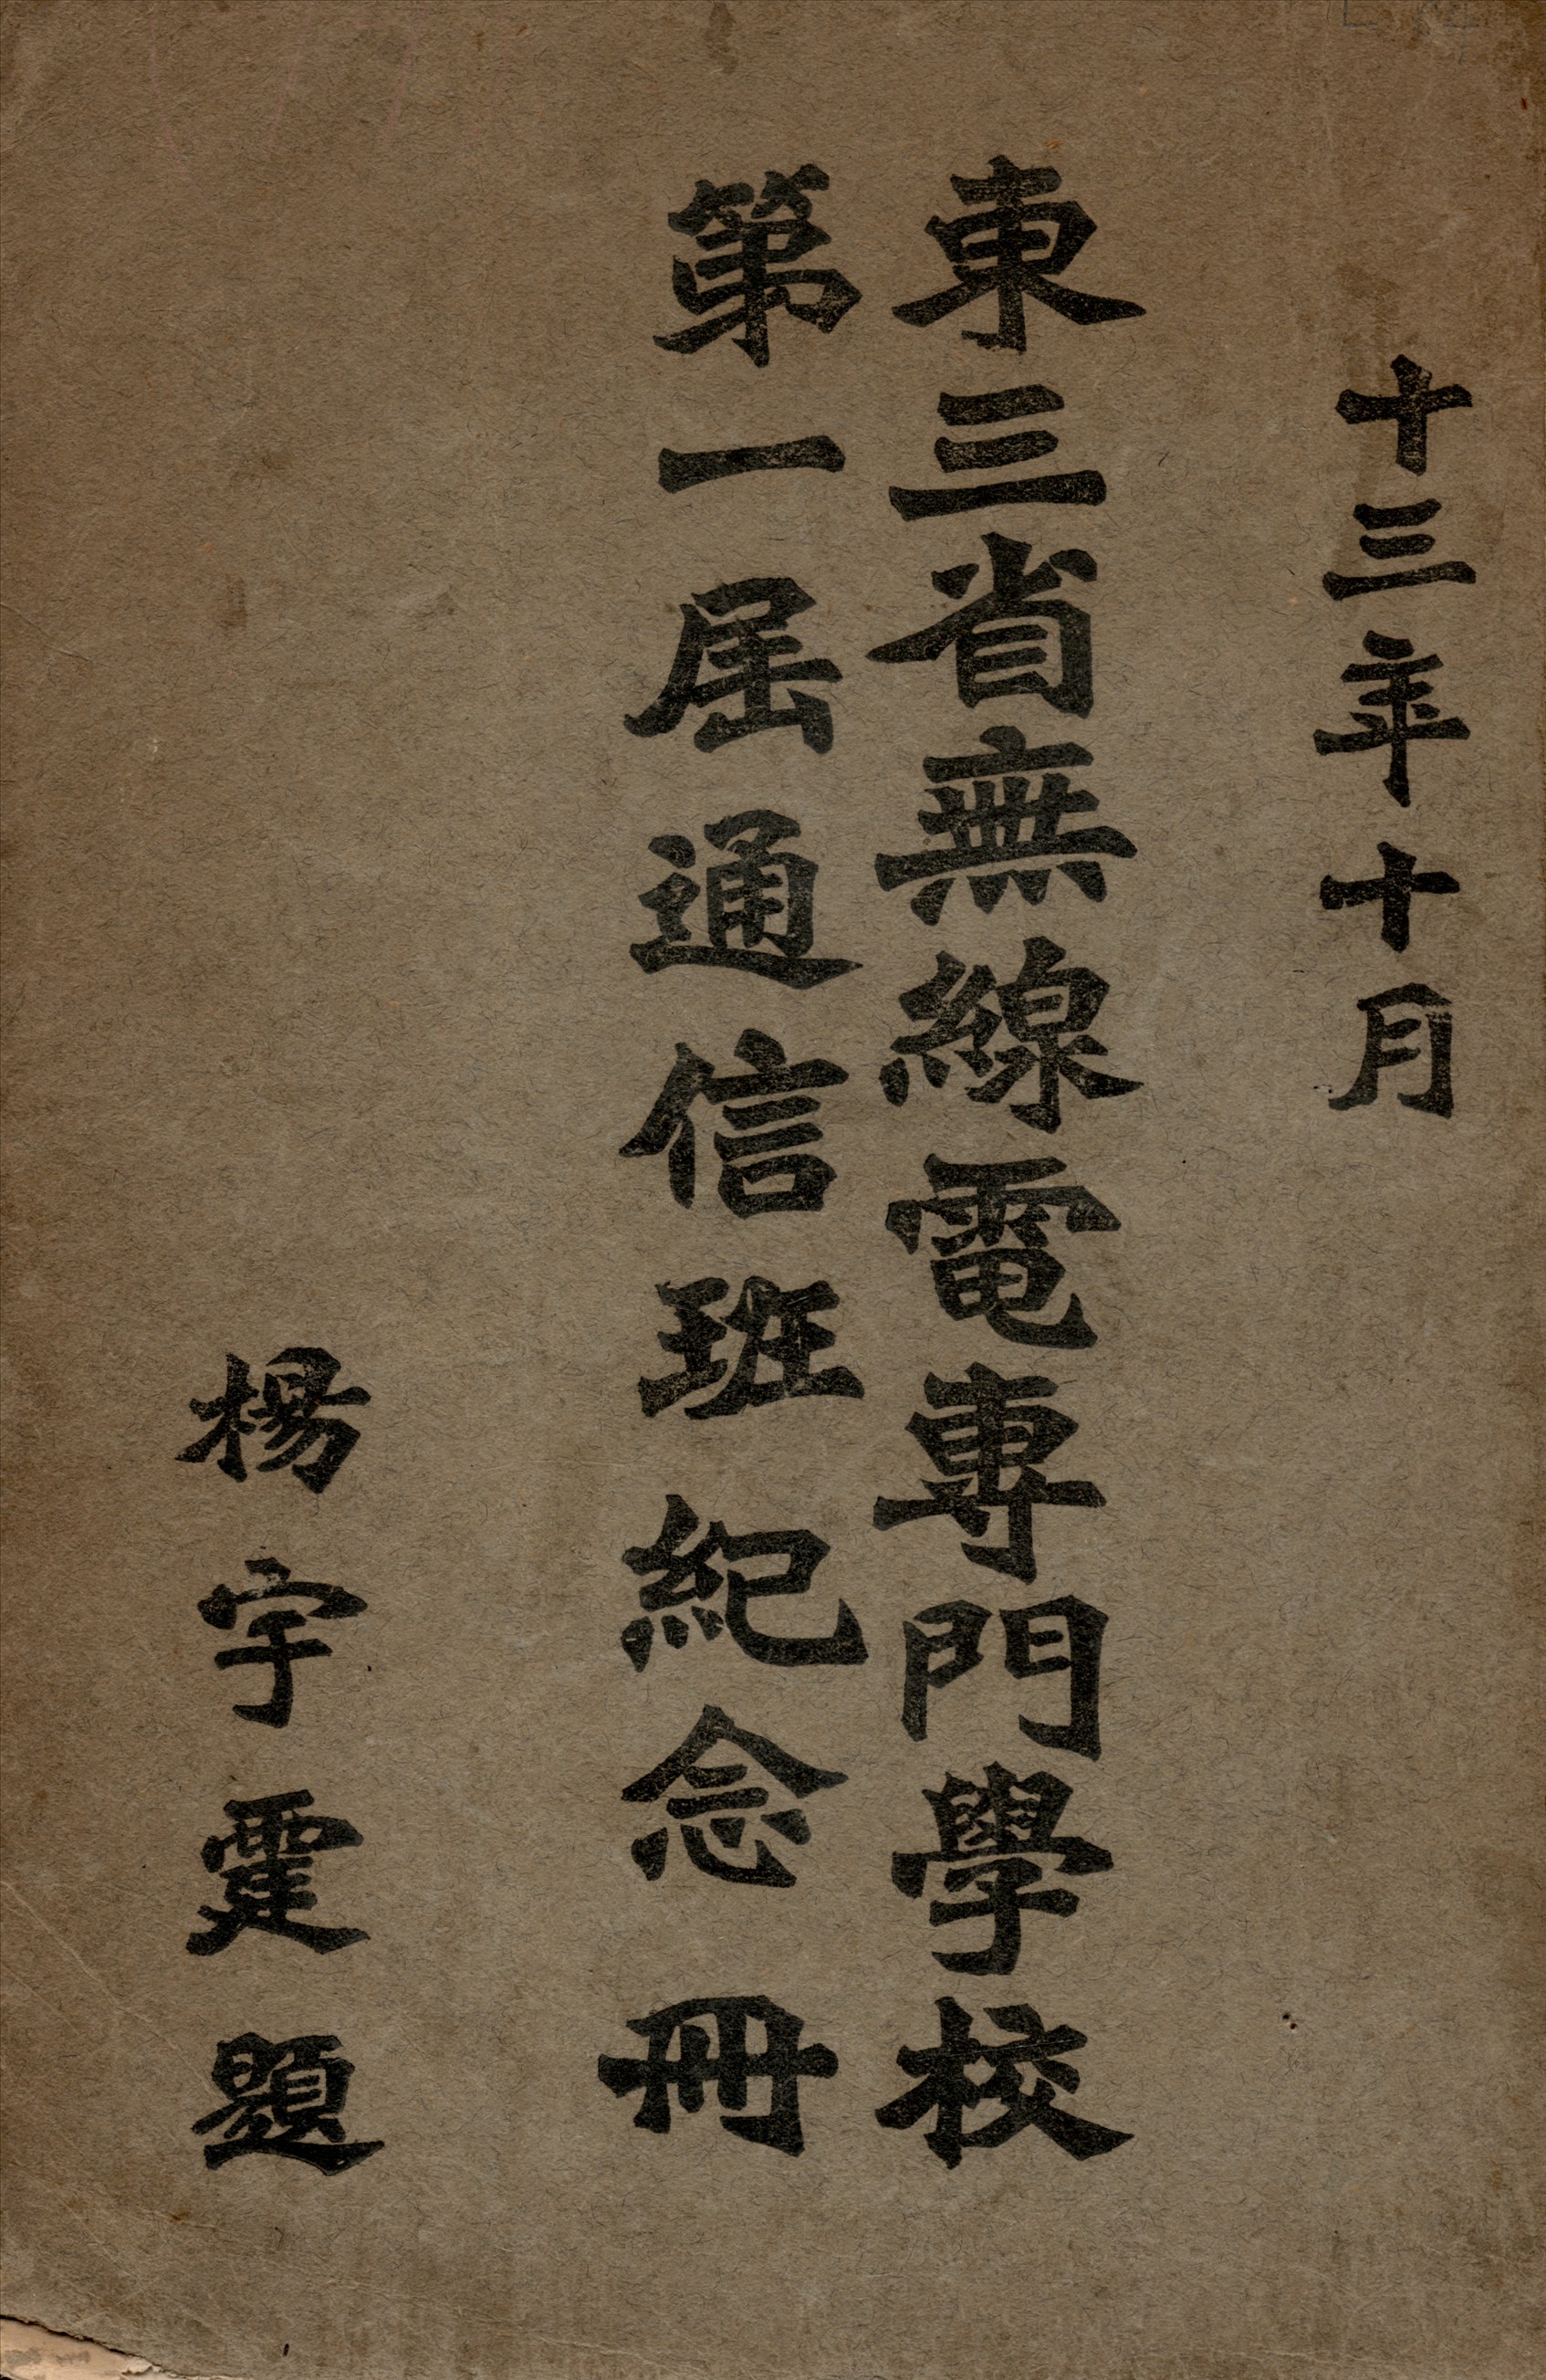 十三年十月
東三省無線電專門學校
第一屆通信班紀念冊
楊宇霆題